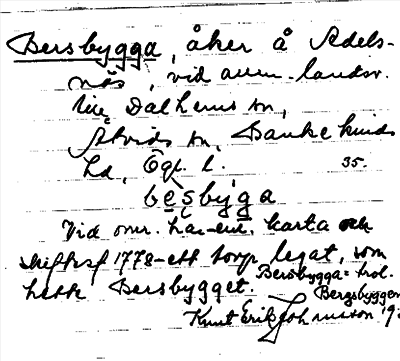 Bersbygga, åker å Adels-
näs, vid aum. landsv.
Dalhems sn,
Åtvids sn, Bankekinds
hd, Ögl. l. 35.
bęs̨byga
Vid omr. har enl. karta och
skiftsf 1778 ett torp legat, som
hette Bersbygget.
Bersbygga = trol.
Bergsbyggen
Knut Erik Johansson